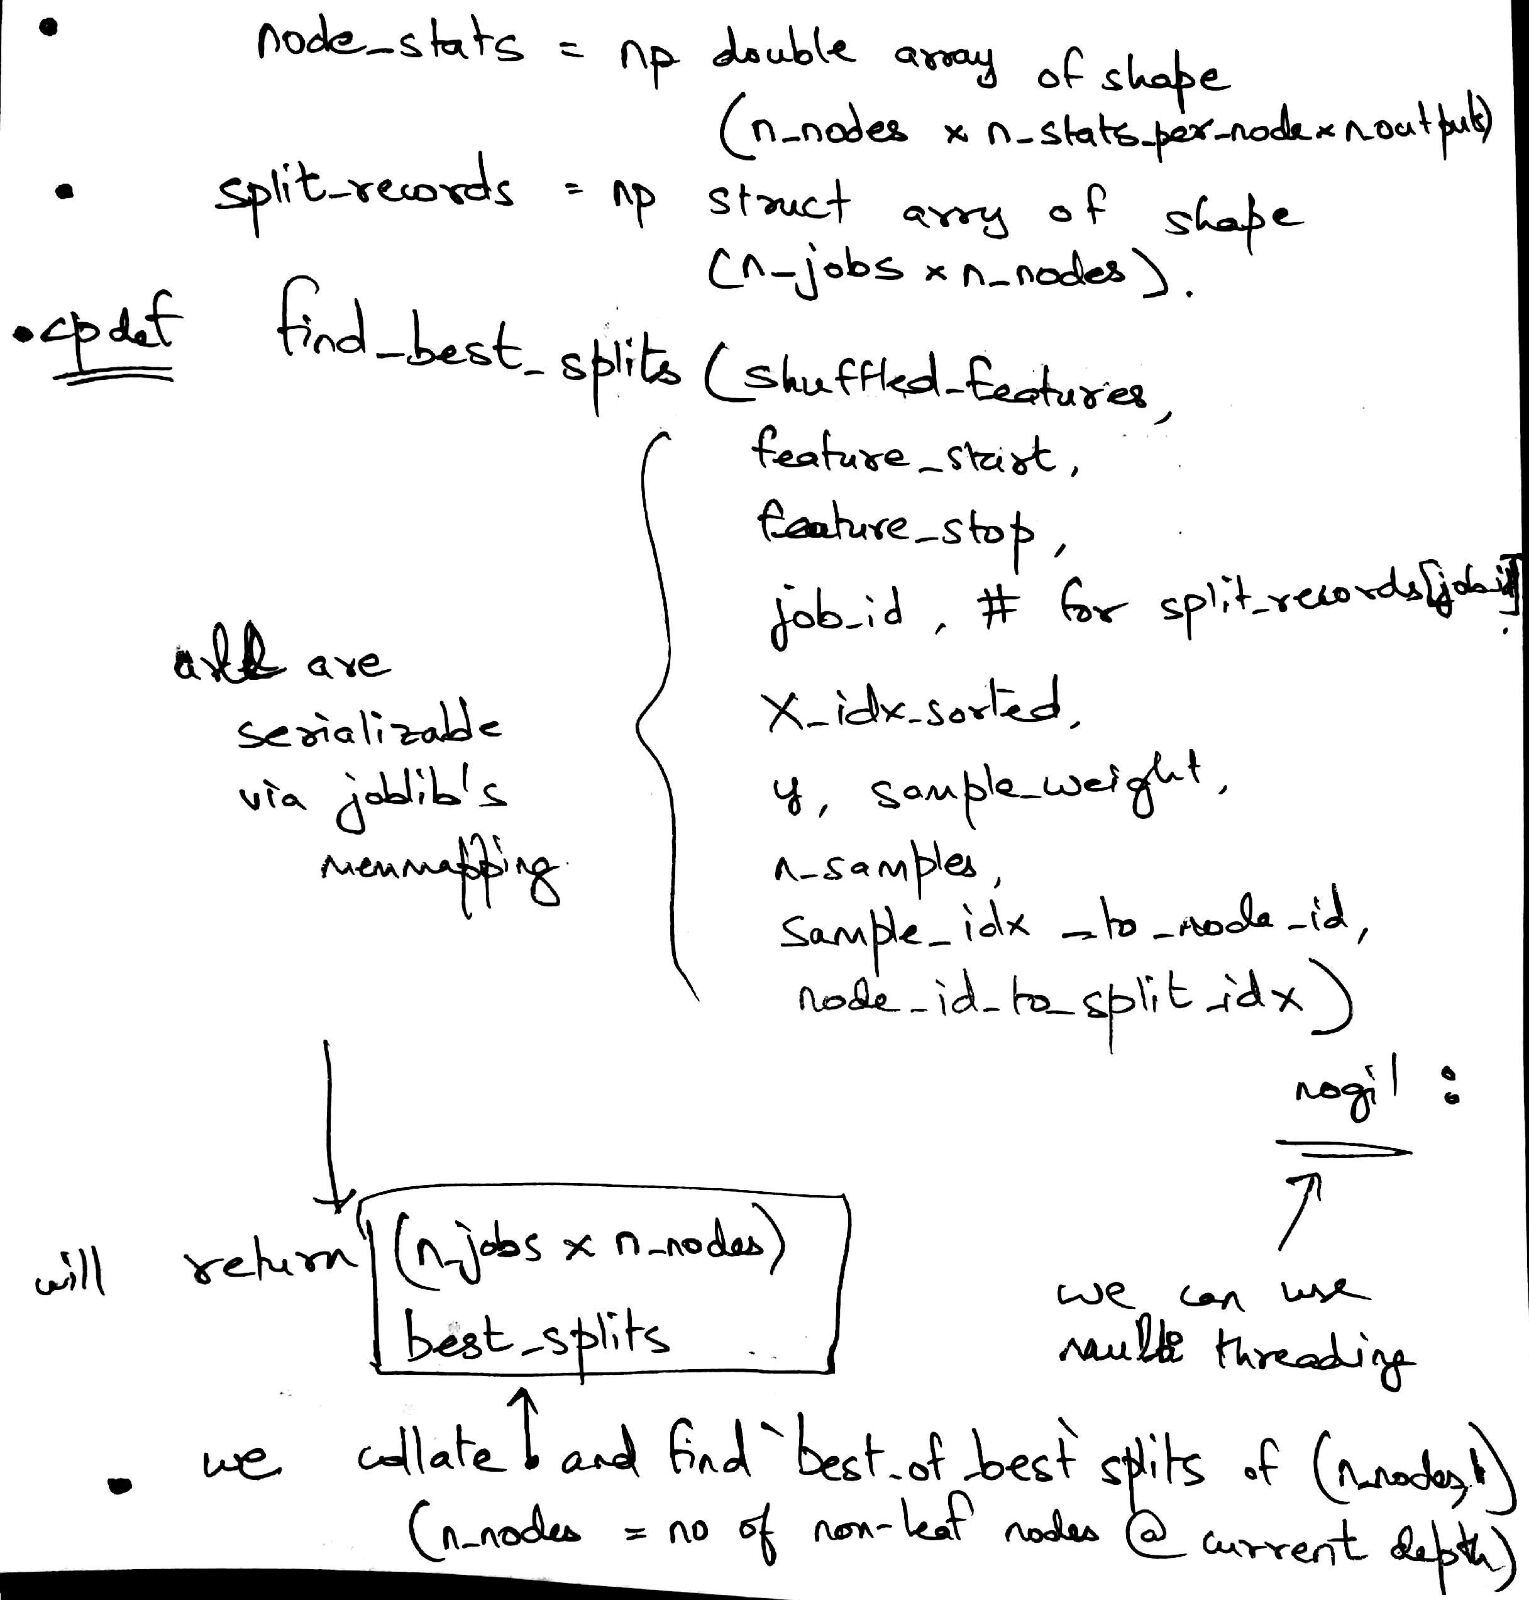 • node_stats = np double array of shape
(n_nodes x n_stats_per_node x noutputs)
• split_records = np struct arry of shape
(n_jobs x n_nodes).
• cpdef find_best_splits (shuffled_features,
feature_start,
feature_stop,
job_id, # for split_records[job_id].
all are
X_idx_sorted,
serializable
via joblib's
y, sample_weight,
memmapping
n_samples,
sample_idx_to_node_id,
node_id_to_split_idx)
nogil :
will return (n_jobs x n_nodes)
best_splits
we can use
multi threading
• we collate and find `best_of_best` splits of (n_nodes,)
(n_nodes = no of non-leaf nodes @ current depth)